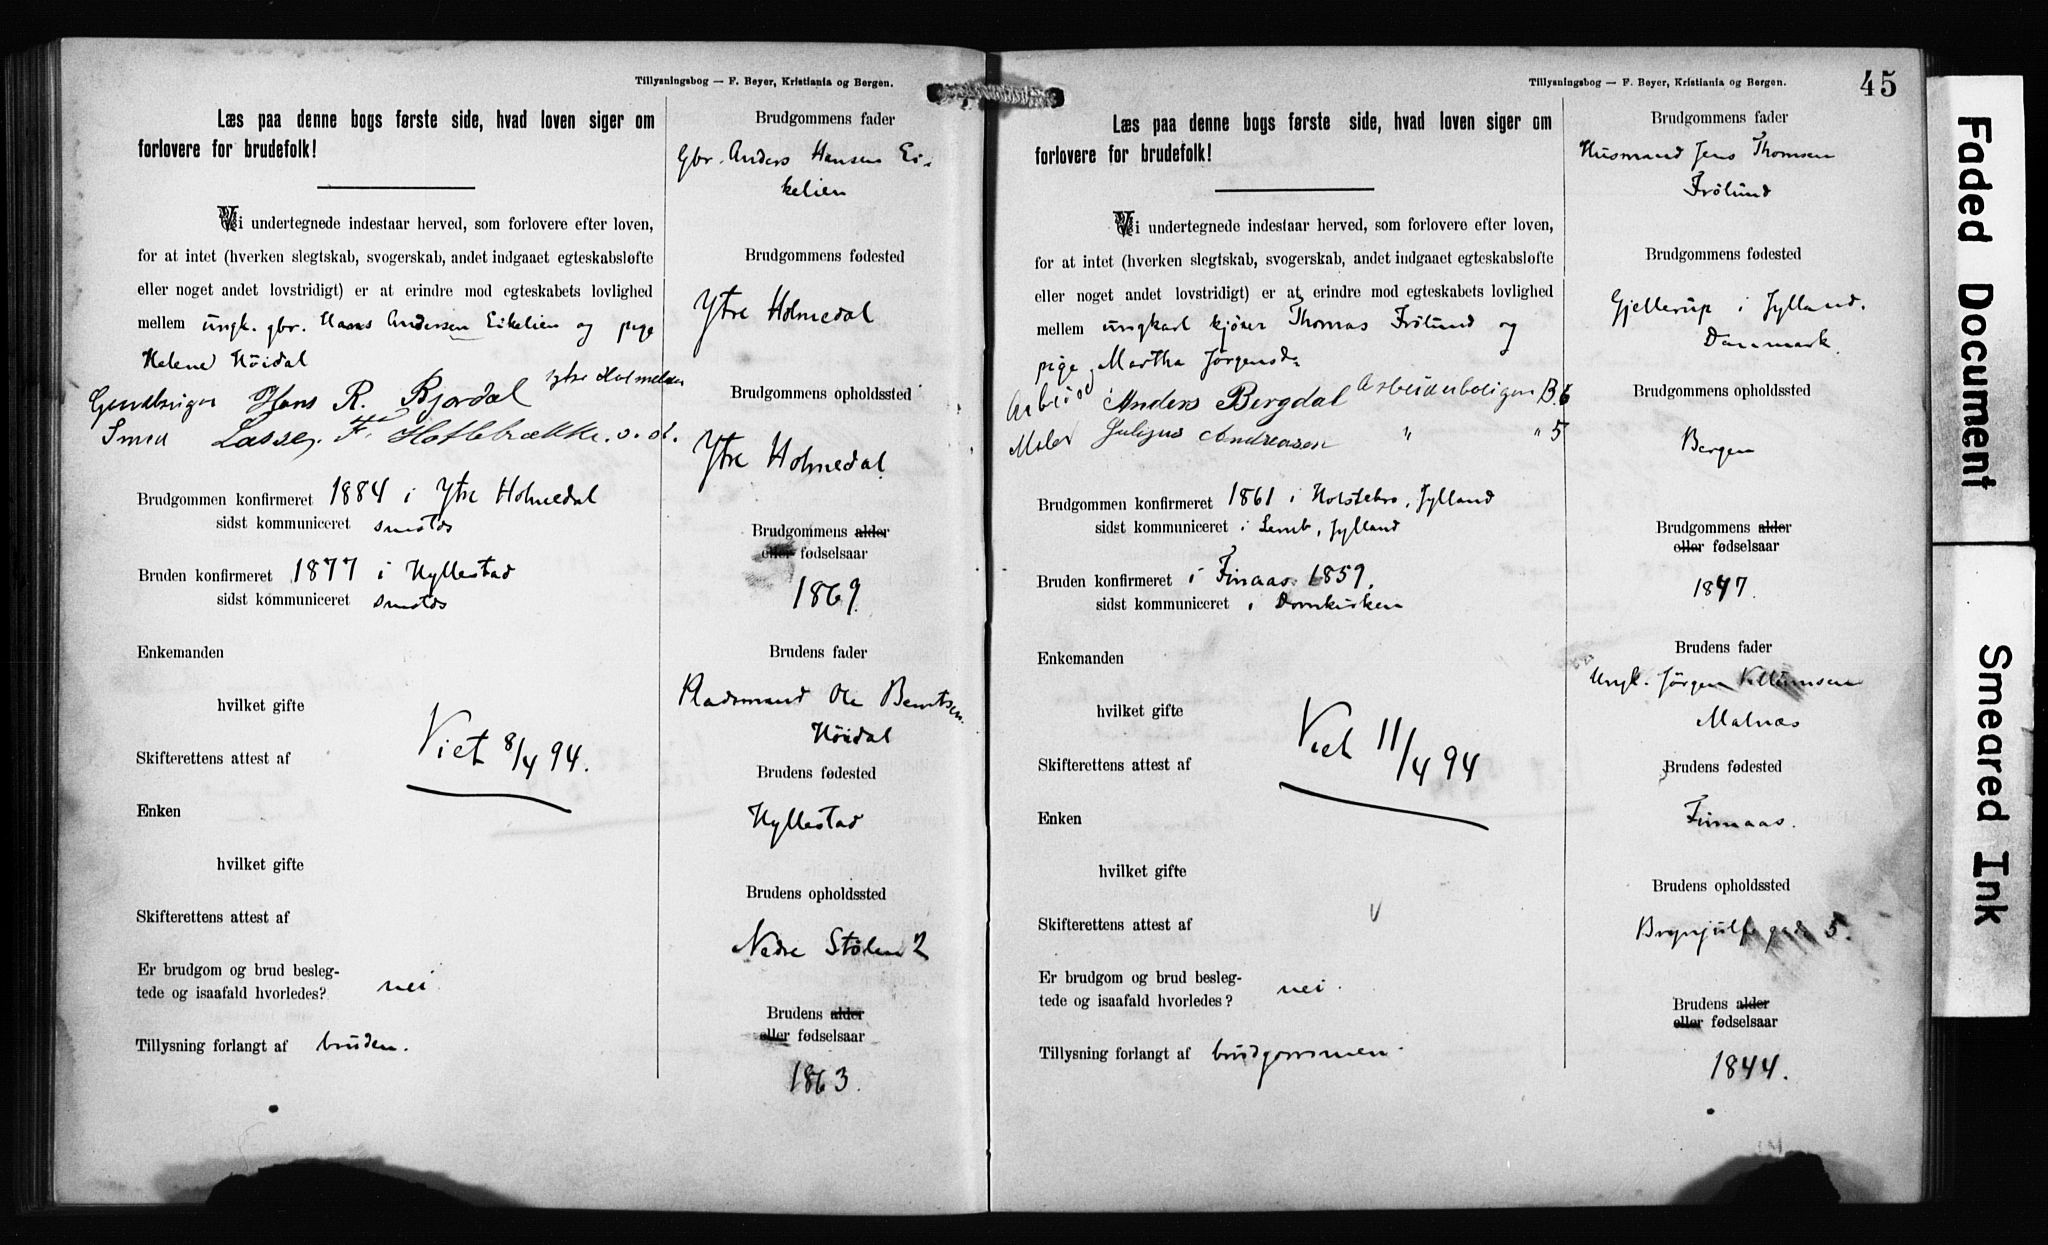 Tillysningsbog — F. Beyer, Kristiania og Bergen.
Læs paa denne bogs første side, hvad loven siger om
forlovere for brudefolk!
Vi undertegnede indestaar herved, som forlovere efter loven,
for at intet (hverken slegtskab, svogerskab, andet indgaaet egteskabsløfte
eller noget andet lovstridigt) er at erindre mod egteskabets lovlighed
mellem ungk. gbr. Hans Andersen Eikelien og pige
Helene Höidal
Gaardbruger Hans R. Bjordal Ytre Holmedal
Smed Lasse F. Hatlebrække s. st.
Brudgommen konfirmeret 1884 i Ytre Holmedal
sidst kommuniceret smstds
Bruden konfirmeret 1877 i Hyllestad
sidst kommuniceret smstds
Enkemanden
hvilket gifte
Viet 8/4 94.
Skifterettens attest af
Enken
hvilket gifte
Skifterettens attest af
Er brudgom og brud besleg-
tede og isaafald hvorledes? nei.
Tillysning forlangt af bruden.
Brudgommens fader
Gbr. Anders Hansen Ei-
kelien
Brudgommens fødested
Ytre Holmedal
Brudgommens opholdssted
Ytre Holmedal
Brudgommens alder
eller fødselsaar
1869.
Brudens fader
Pladsmand Ole Berntsen
Höidal
Brudens fødested
Hyllestad
Brudens opholdssted
Nedre Stølen 2
Brudens alder
eller fødselsaar
1863.
Tillysningsbog — F. Beyer, Kristiania og Bergen.
45
Læs paa denne bogs første side, hvad loven siger om
forlovere for brudefolk!
Vi undertegnede indestaar herved, som forlovere efter loven,
for at intet (hverken slegtskab, svogerskab, andet indgaaet egteskabsløfte
eller noget andet lovstridigt) er at erindre mod egteskabets lovlighed
mellem ungkarl kjører Thomas Frölund og
pige Martha Jørgensdr
Arbeider Anders Bergdal Arbeiderboligen B. 6
Maler Julius Andreasen " " 5
Brudgommen konfirmeret 1861 i Holstebro, Jylland
sidst kommuniceret i Lemb, Jylland
Bruden konfirmeret i Finaas 1859.
sidst kommuniceret i Domkirken
Enkemanden
hvilket gifte
Viet 11/4 94
Skifterettens attest af
Enken
hvilket gifte
Skifterettens attest af
Er brudgom og brud besleg-
tede og isaafald hvorledes? nei.
Tillysning forlangt af brudgommen.
Brudgommens fader
Husmand Jens Thomsen
Frölund
Brudgommens fødested
Gjellerup i Jylland.
Danmark.
Brudgommens opholdssted
Bergen
Brudgommens alder
eller fødselsaar
1847.
Brudens fader
Ungk. Jørgen
Malnæs
Brudens fødested
Finnaas.
Brudens opholdssted
Brynjulfs gade 5.
Brudens alder
eller fødselsaar
1844.
Faded Document
Smeared Ink